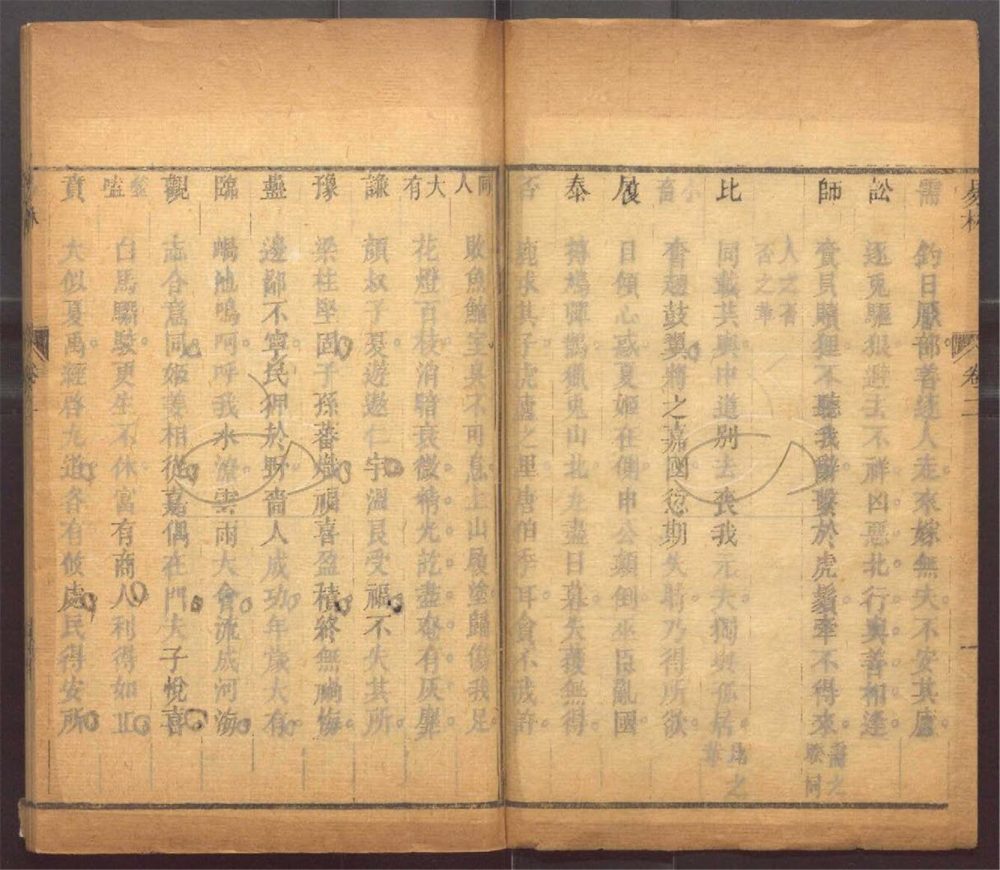 易林
卷二
需 釣目厭部善逐人走來嫁無夫不安其廬
訟 逐兔驅狼避去不祥凶惡北行與善相逢
師 齎貝贖狸不聽我辭繫於虎鬚牽不得來
否之華
比 同載共輿中道別去喪我元夫獨與孤居
小畜 奮翅鼓翼將之嘉國愆期失時乃得所欲
履 日傾心惑夏姬在側申公顛倒巫臣亂國
泰 摶鳩彈鵲獵兔山北丸盡日暮失獲無得
否 鹿求其子虎廬之里唐伯季耳貪不我許
同人 敗魚鮑室臭不可息上山履塗歸傷我足
大有 花燈百枝消暗衰微精光訖盡奄有灰糜
謙 顏叔子夏遊遨仁宇溫良受福不失其所
豫 梁柱堅固子孫蕃熾福喜盈積終無禍悔
蠱 邊鄙不寧民狎於野嗇人成功年歲大有
臨 蝸池鳴呴呼我水潦雲雨大會流成河海
觀 志合意同姬姜相從嘉偶在門夫子悅喜
噬嗑 白馬騮駁更生不休富有商人利得如丘
賁 大似夏禹經啓九道各有攸處民得安所